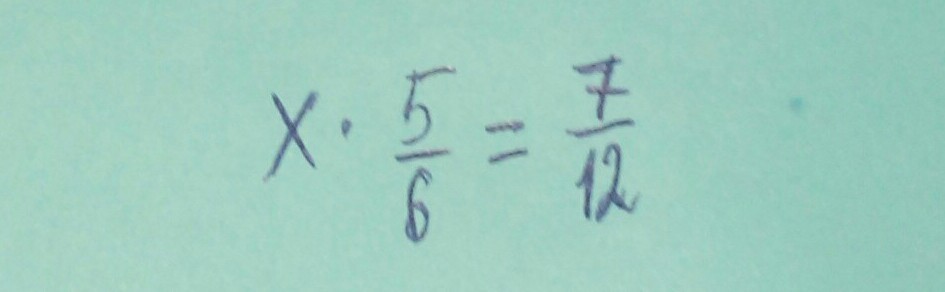 X · 5/6 = 7/12